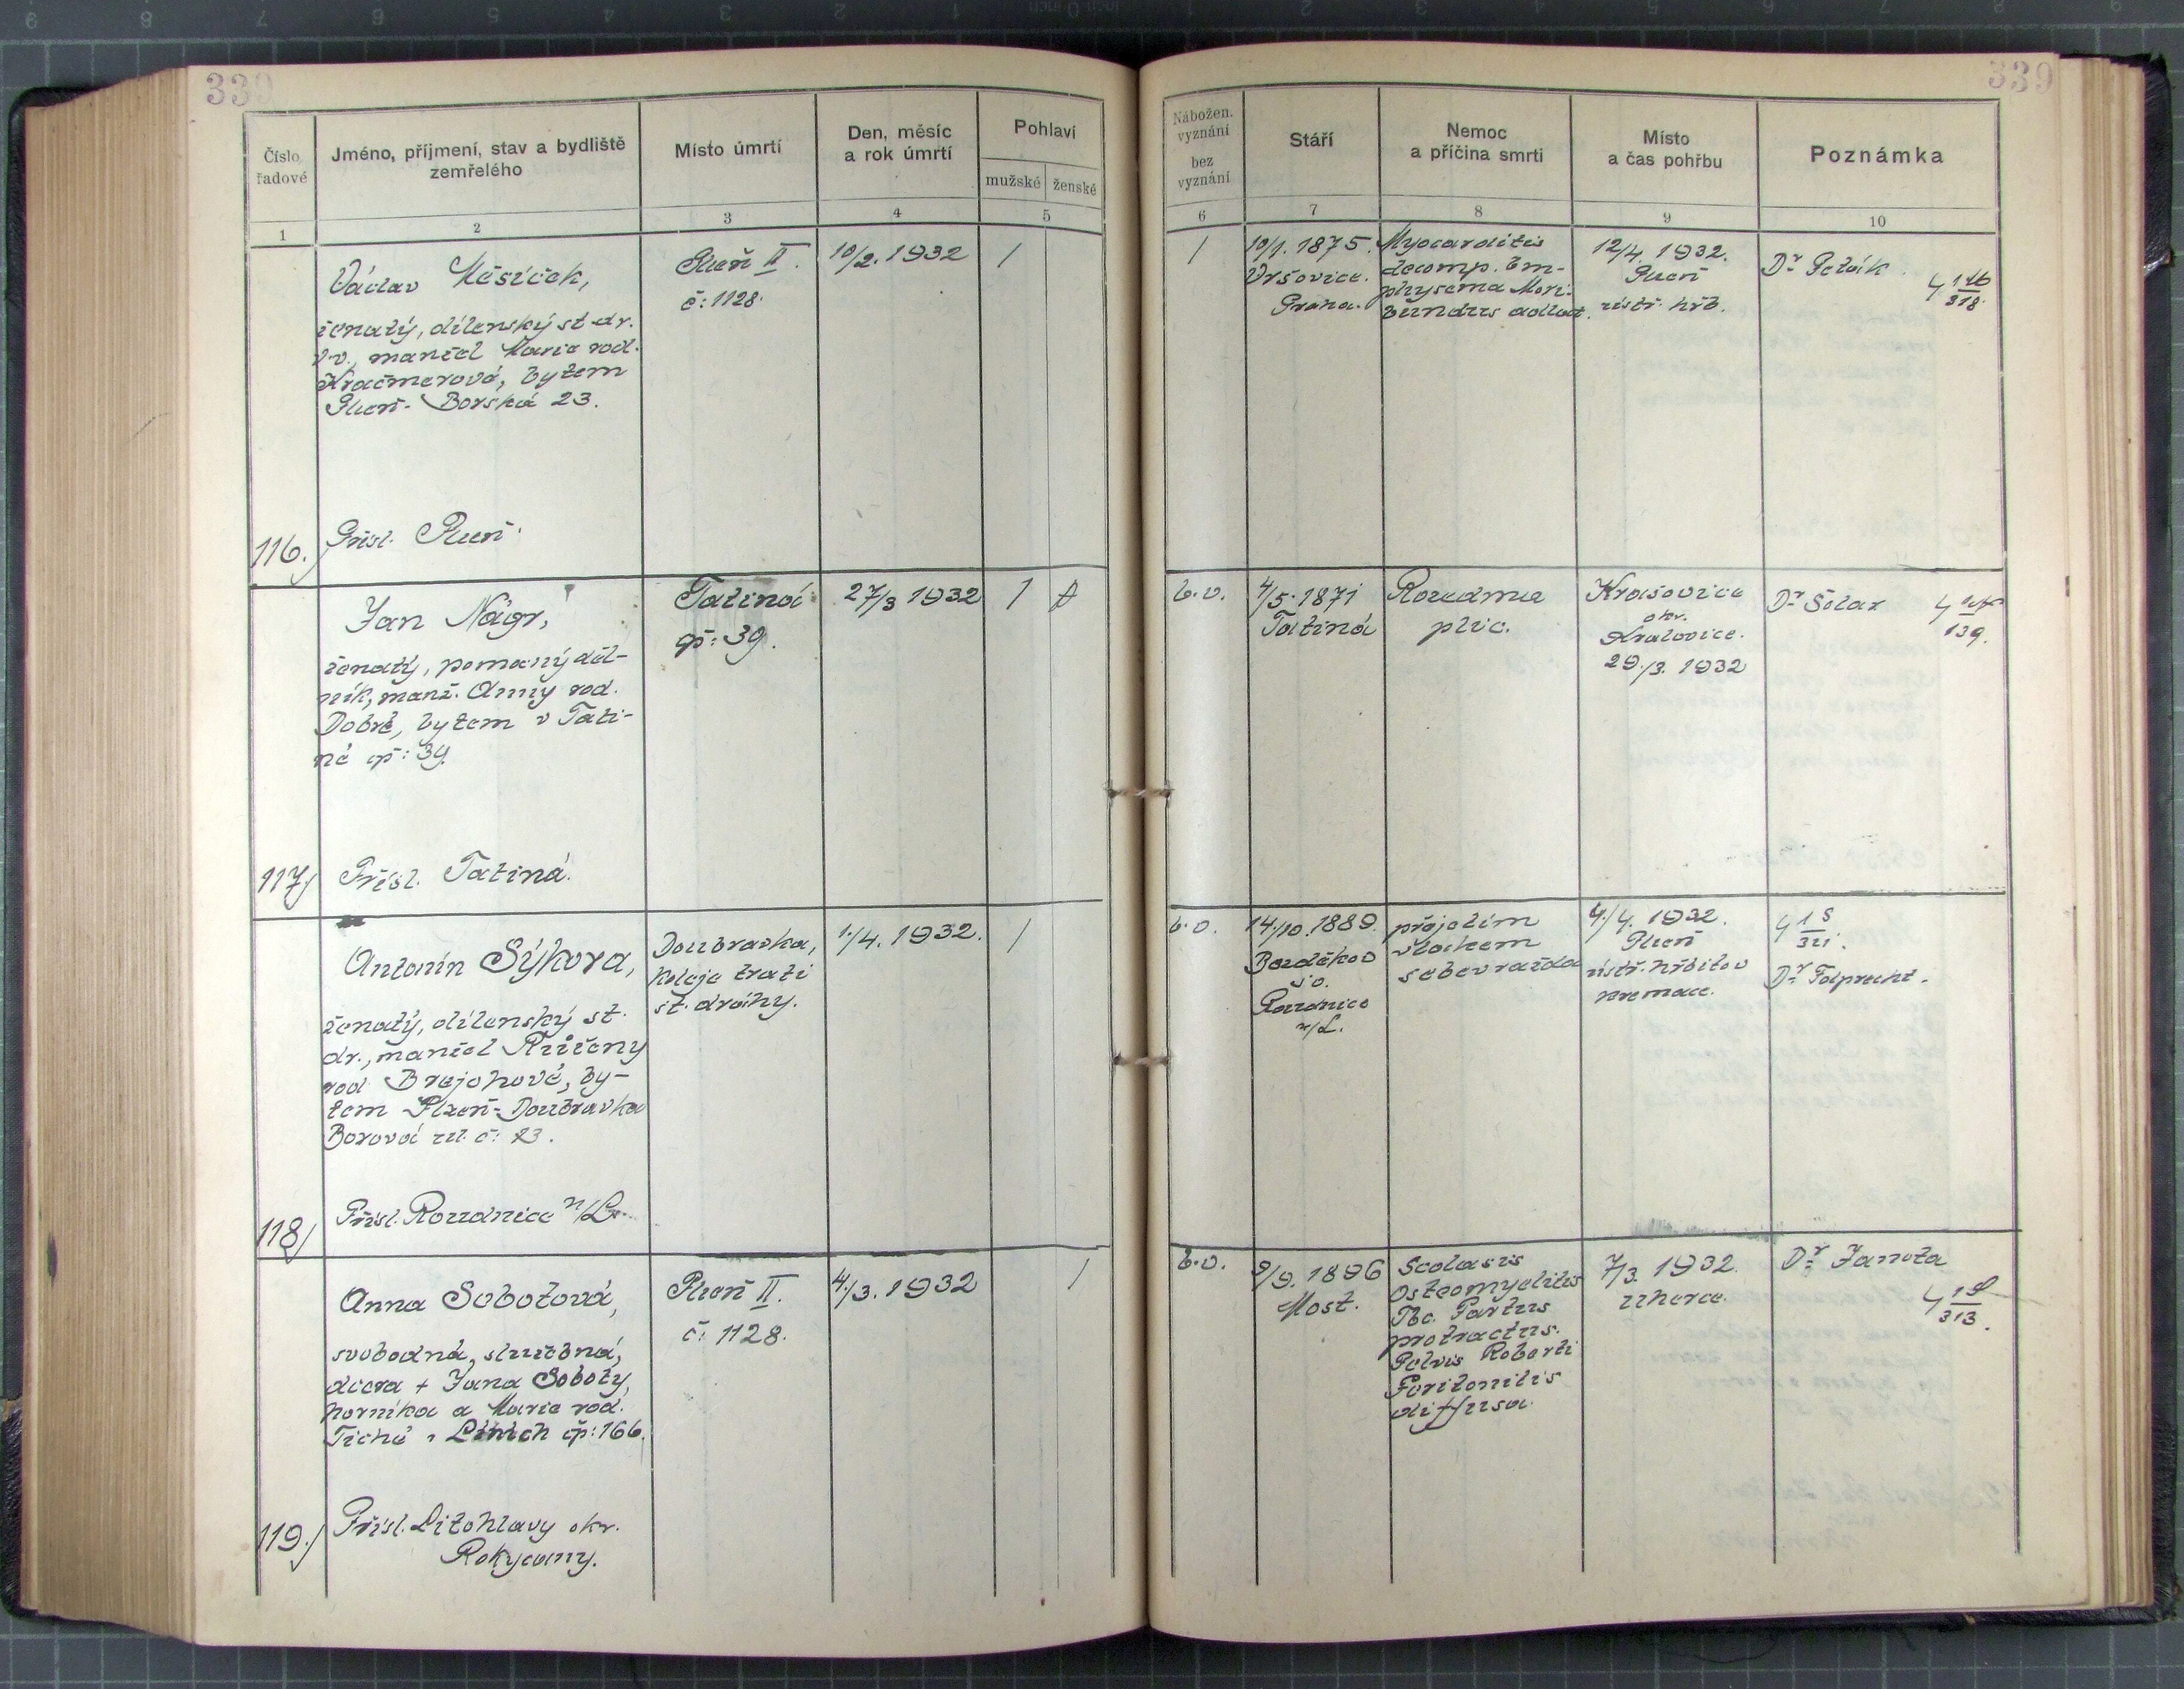 339
339
Číslo řadové
Jméno, příjmení, stav a bydliště zemřelého
Místo úmrtí
Den, měsíc a rok úmrtí
Pohlaví
mužské
ženské
Nábožen. vyznání
bez vyznání
Stáří
Nemoc a příčina smrti
Místo a čas pohřbu
Poznámka
1
2
3
4
5
6
7
8
9
10
116.
Václav Měsíček,
ženatý, dílenský st dr.
v.v., manžel Marie rod.
Kračmerová, bytem
Plzeň - Borská 23.
Přísl. Plzeň.
Plzeň II.
č: 1128.
10/2. 1932
1
/
10/1. 1875.
Vršovice.
Praha.
Myocarditis
decomp. Em-
physema Mori-
bundus adlat.
12/4. 1932.
Plzeň
ústř. hřb.
Dr Peták.
4 1
318.
117/
Jan Nágr,
ženatý, pomocný děl-
ník, manž. Anny rod.
Dobré, bytem v Tati-
né čp: 39.
Přísl. Tatiná.
Tatiná
čp: 39.
27/3 1932
1
b.v.
4/5. 1871
Tatiná
Rozedma
plic.
Krašovice
okr.
Kralovice.
29./3. 1932
Dr Šolar
4
139.
118/
Antonín Sýkora,
ženatý, dílenský st.
dr., manžel Růženy
rod Brejchové, by-
tem Plzeň - Doubravka
Borová ul. č: 23.
Přísl. Roudnice n/L.
Doubravka,
koleje trati
st. dráhy.
1./4. 1932.
1
b.v.
14./10. 1889.
Bezděkov
Roudnice
n/L.
přejetím
vlakem
sebevražda
4./4. 1932.
Plzeň
ústř. hřbitov
kremace.
4 1 S
321.
Dr Folprecht.
119./
Anna Sobotová,
svobodná, služebná,
dcera + Jana Soboty,
horníka a Marie rod.
Tiché v Líních čp: 166.
Přísl. Litohlavy okr.
Rokycany.
Plzeň II.
č: 1128.
4./3. 1932
1
b.v.
9/9. 1896
Most.
Scolasis
Osteomyelitis
Tbc. Partus
protractus.
Pelvis Roberti
Peritonitis
diffusa.
7/3. 1932.
Uherce.
Dr Janota
4 1 S
313.